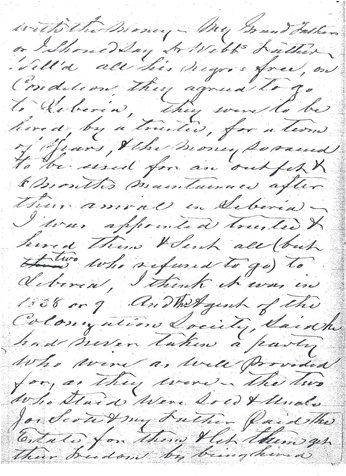 with the money – My Grand Father
or I Should Say Dr Webbs Father
Will'd all his negroes free, on
Condition they agreed to go
to Liberia, they were to be
hired, by a trustee, for a term
of years, & the money so raised
to be used for an outfit &
6 months maintainance after
their arrival in Liberia –
I was appointed trustee &
hired them & Sent all (but
two who refused to go) to
Liberia, I think it was in
1838 or 9 And the Agent of the
Colonization Society, Said he
had never taken a party
who were as well Provided
for, as they were – the two
who Staid were Sold & Uncle
Jos Scott & my Father Paid the
Estate for them & let them get
their freedom by being hired